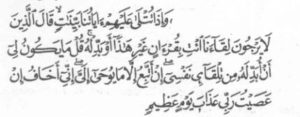 وَإِذَا تُتْلَىٰ عَلَيْهِمْ ءَايَاتُنَا بَيِّنَٰتٍ قَالَ الَّذِينَ
لَا يَرْجُونَ لِقَاءَنَا ائْتِ بِقُرْءَانٍ غَيْرِ هَٰذَا أَوْ بَدِّلْهُ قُلْ مَا يَكُونُ لِي
أَنْ أُبَدِّلَهُ مِن تِلْقَآئِ نَفْسِي إِنْ أَتَّبِعُ إِلَّا مَا يُوحَىٰ إِلَيَّ إِنِّي أَخَافُ إِنْ
عَصَيْتُ رَبِّي عَذَابَ يَوْمٍ عَظِيمٍ